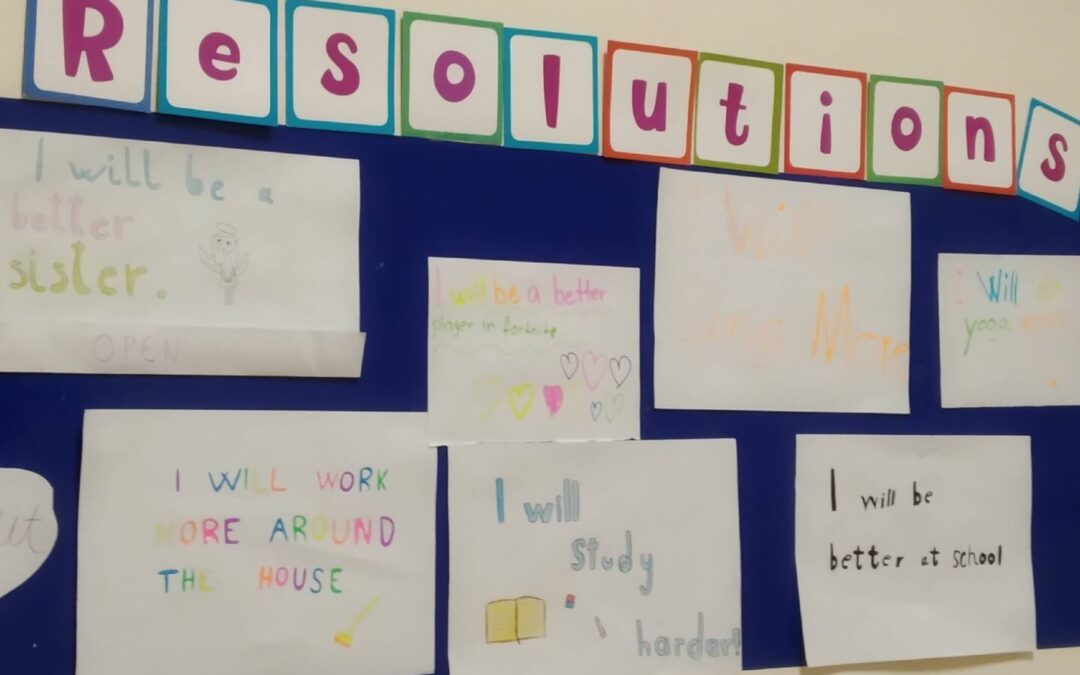 Resolutions
I will be a
better
sister.
OPEN
I will be a better
player in fortnite
I Will
More
I Will do
yoga
I WILL WORK
MORE AROUND
THE HOUSE
I will
study
harder!
I will be
better at school